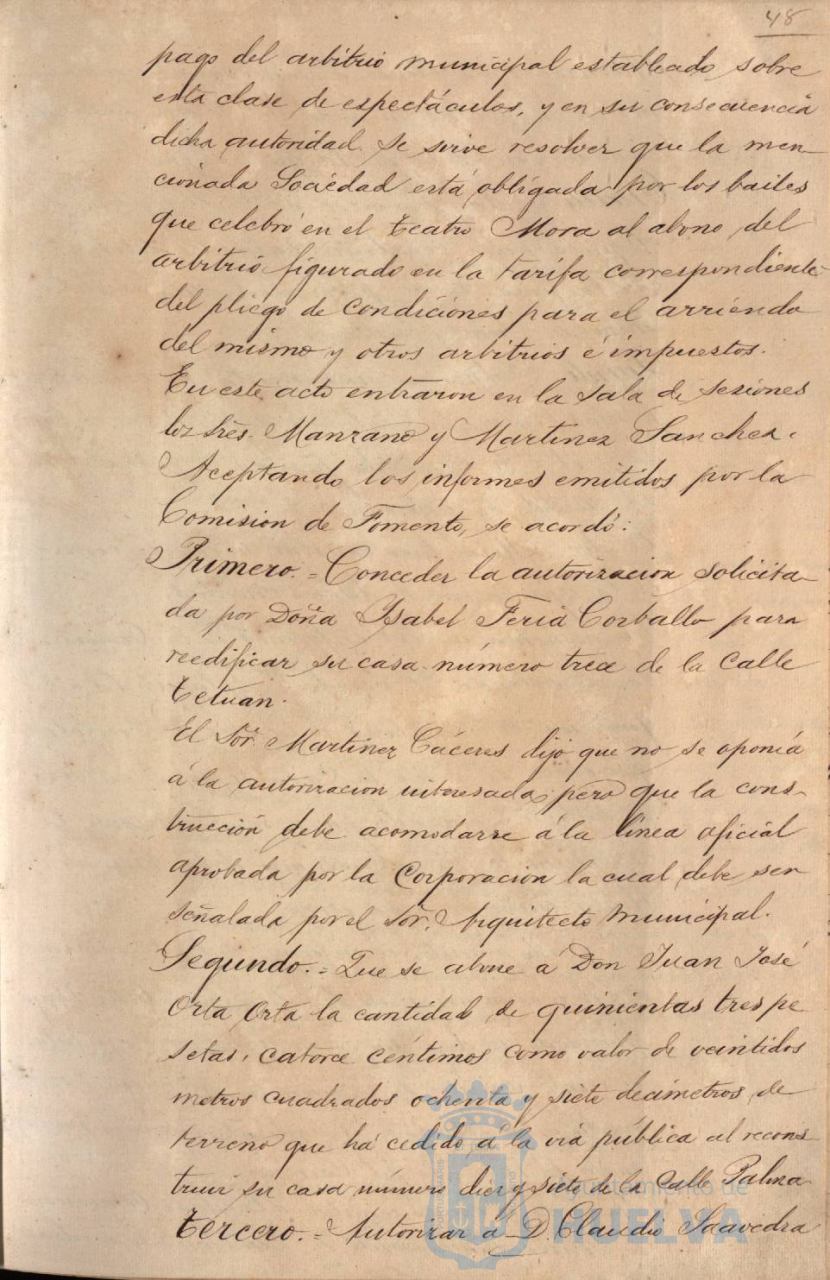 48
pago del arbitrio municipal establecido sobre
esta clase de espectáculos, y en su consecuencia
dicha autoridad se sirve resolver que la men-
cionada Sociedad está obligada por los bailes
que celebró en el teatro Mora al abono del
arbitrio figurado en la tarifa correspondiente
del pliego de condiciones para el arriendo
del mismo y otros arbitrios é impuestos.
En este acto entraron en la sala de sesiones
los Sres. Manzano y Martinez Sanchez.
Aceptando los informes emitidos por la
Comision de Fomento, se acordó:
Primero.= Conceder la autorizacion solicita-
da por Doña Ysabel Feria Corballo para
reedificar su casa número trece de la calle
Tetuan.
El Sor. Martinez Cáceres dijo que no se oponia
á la autorizacion interesada, pero que la cons-
trucción debe acomodarse á la línea oficial
aprobada por la Corporacion la cual debe ser
señalada por el Sor. Arquitecto municipal.
Segundo.= Que se abone á Don Juan José
Orta Orta la cantidad de quinientas tres pe
setas, catorce céntimos como valor de veintidos
metros cuadrados ochenta y siete decímetros de
terreno que há cedido á la via pública al recons
truir su casa número diez y siete de la calle Palma
Tercero.= Autorizar a D. Claudio Saavedra
Ayuntamiento de
HUELVA